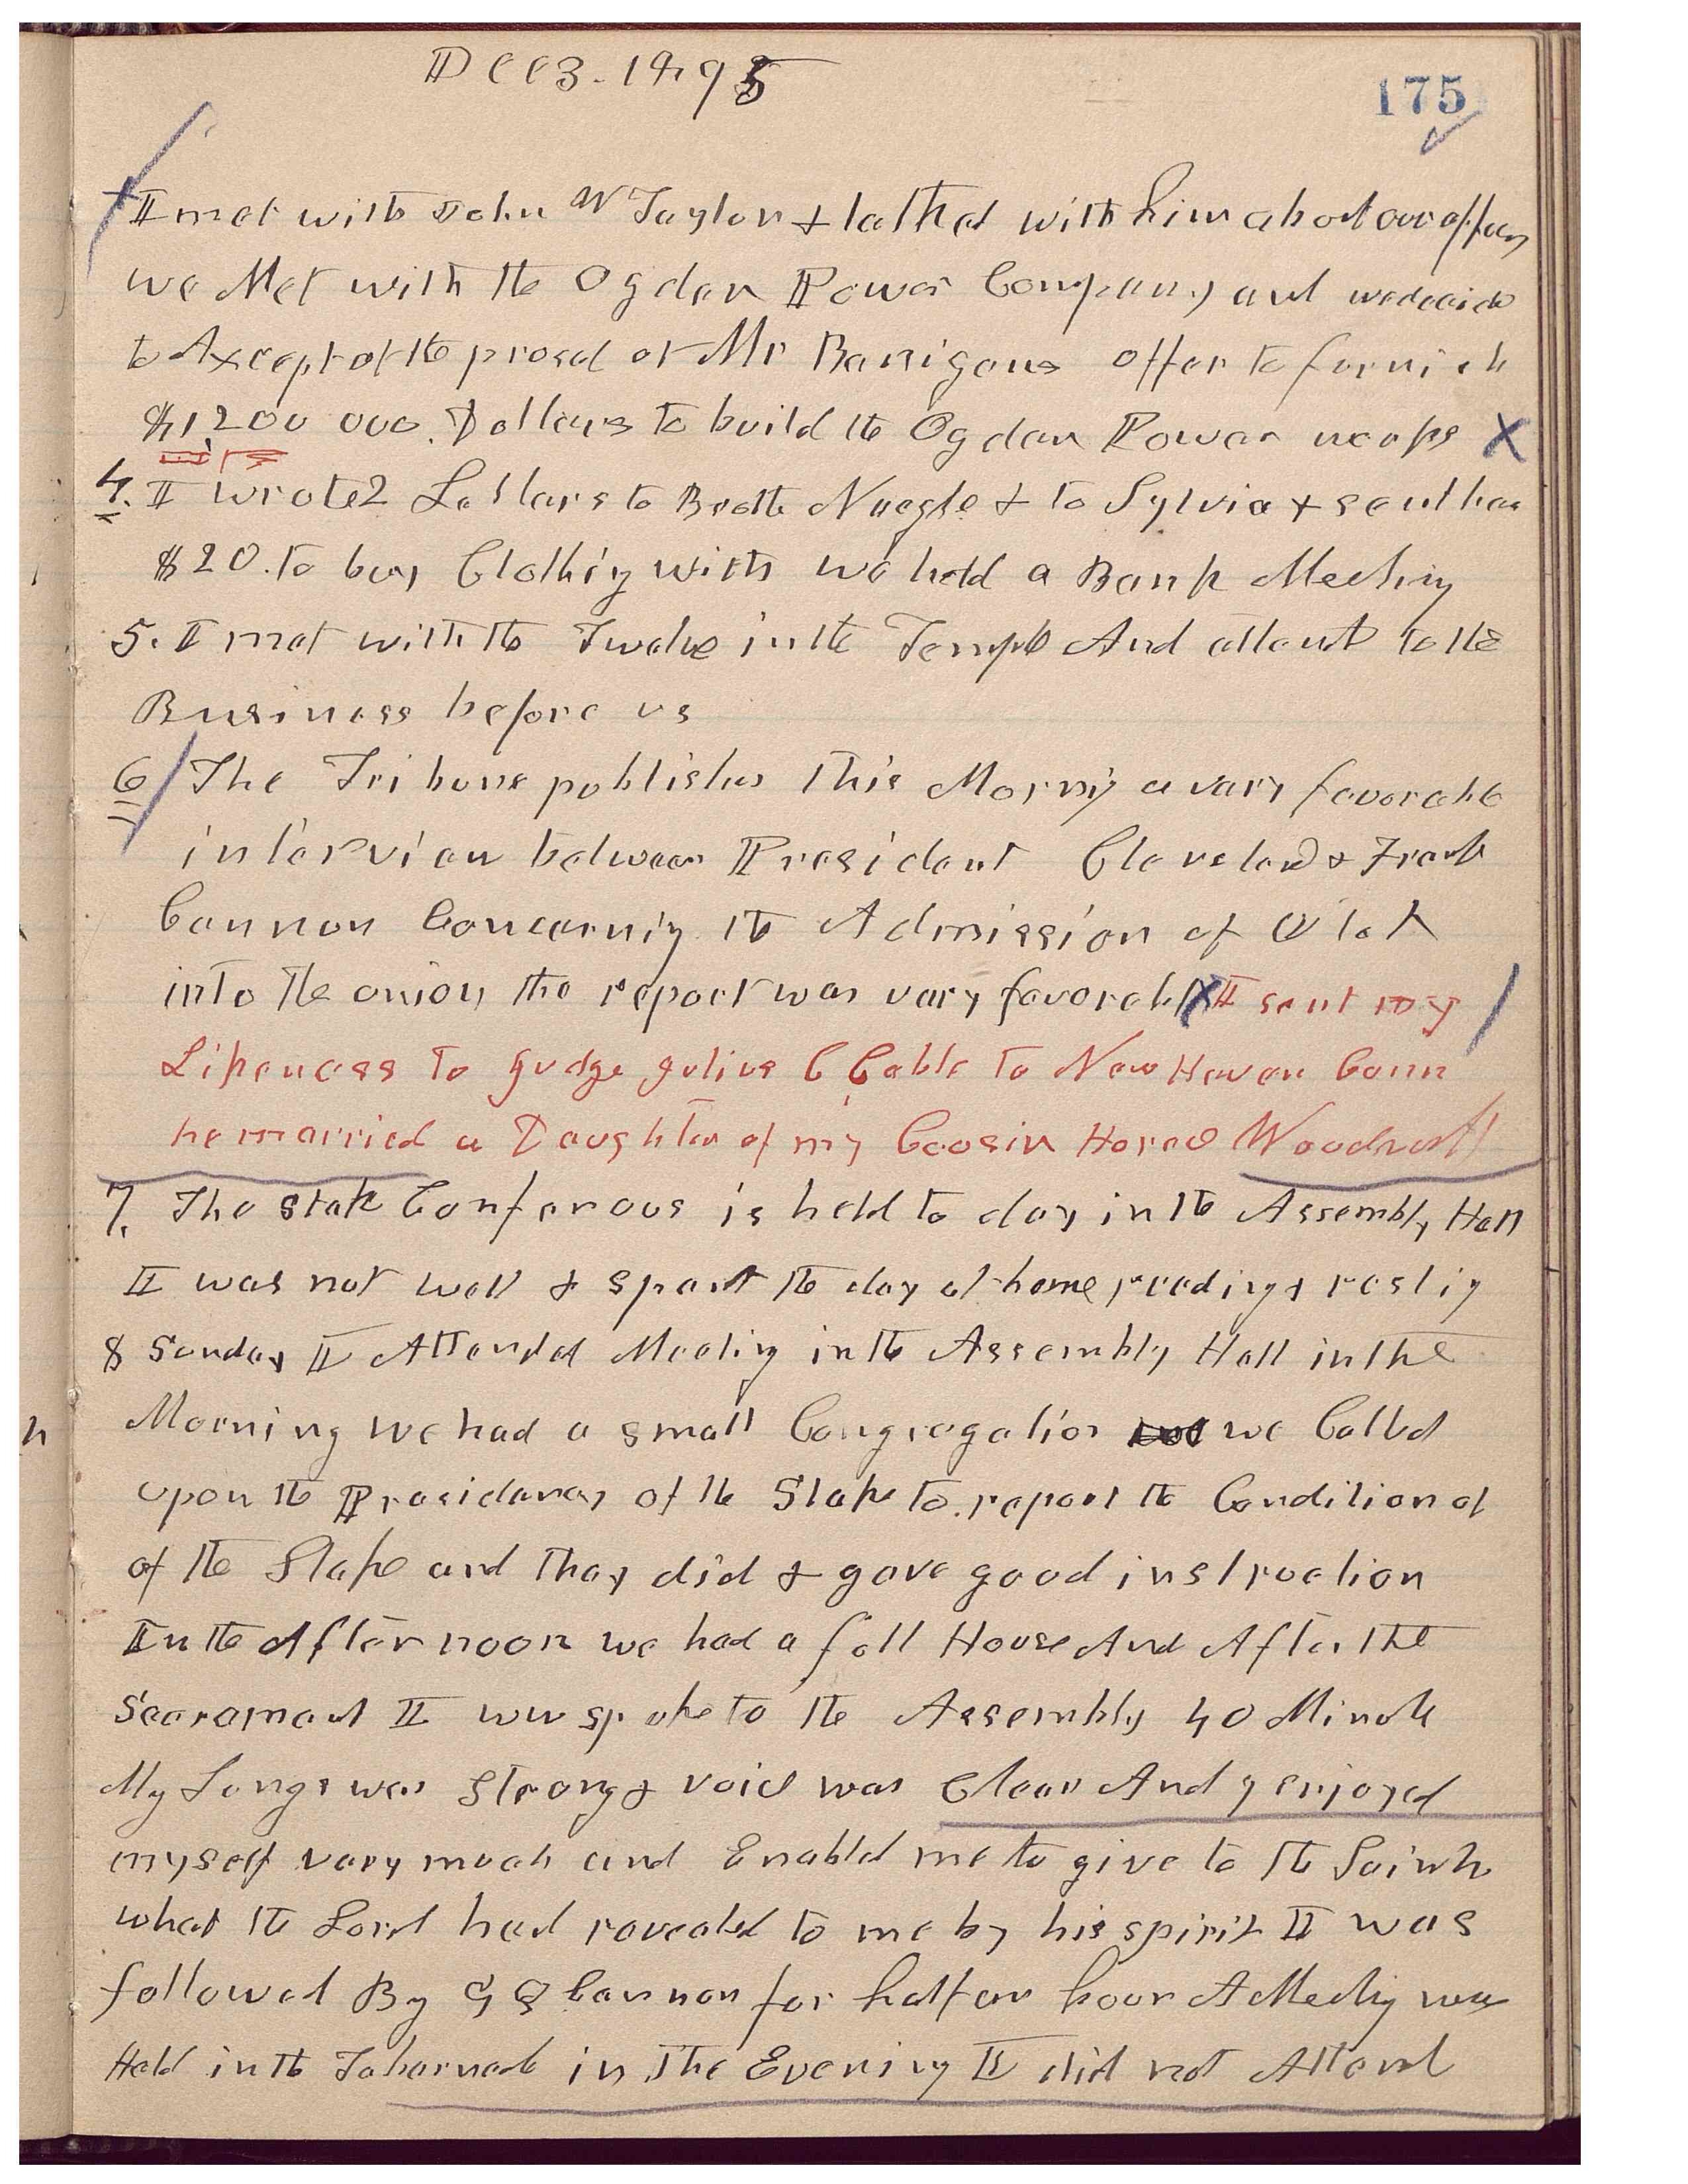 Dec 3. 1895
175
I met with John W Taylor & talked with him about our affairs
we Met with the Ogden Power Company and we decide
to Axcept of the prosal of Mr Banigans offer to furnish
$1,200 000. Dollars to build the Ogden Power works X
4. I wrote 2 Letters to Brother Naegle & to Sylvia & sent her
$20. to buy Clothing with we held a Bank Meeting
5. I met with the Twelve in the Temple And attend to the
Business before us
6 The Tribune publishes this Morning a vary favorable
interview between President Cleveland & Frank
Cannon Concerning the Admission of Utah
into the union the report was vary favorable X I sent my
Likeness to Judge Julius C Cable to New Haven Conn
he married a Daughter of my Coosin Horace Woodruff
7. The Stake Conferous is held to day in the Assembly Hall
I was not well & spent the day at home reading & restig
8 Sunday I Attended Meeting in the Assembly Hall in the
Morning we had a small Congregation we Called
upon the Presidency of the Stake to report the Condition of
of the Stake and they did & gave good instruction
In the Afternoon we had a full House And After the
Sacrament I WW spoke to the Assembly 40 Minute
My Lungs was strong & voice was Clear And I enjoyed
myself vary much and Enabled me to give to the Saints
what the Lord had revealed to me by his spirit I was
followed By G Q Cannon for half an hour A Meeting was
Held in the Tabernacle in the Evening I did not Attend